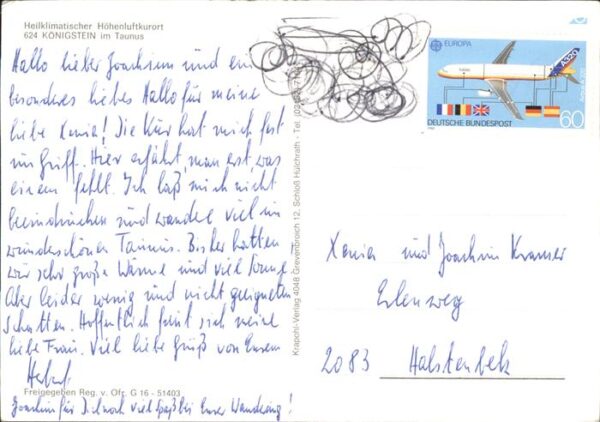 Heilklimatischer Höhenluftkurort
624 KÖNIGSTEIN im Taunus
Hallo lieber Joachim und ein
besonderes liebes Hallo für meine
liebe Xenia! Die Kur hat mich fest
im Griff. Hier erfährt man erst, was
einem fehlt. Ich laß mich nicht
beeindrucken und wandere viel im
wunderschönen Taunus. Bisher hatten
wir sehr große Wärme und viel Sonne
Aber leider wenig und nicht geeigneten
Schatten. Hoffentlich freut sich meine
liebe Frau. Viel liebe Grüße von Eurem
Herbert
Freigegeben Reg. v. Ofr. G 16 - 51403
Joachim für Dich noch viel Spaß bei Eurer Wanderung!
Krapohl-Verlag 4048 Grevenbroich 12, Schloß Hülchrath - Tel.
EUROPA
A320
DEUTSCHE BUNDESPOST
60
Xenia und Joachim Kramer
Erlenweg
2083 Halstenbek